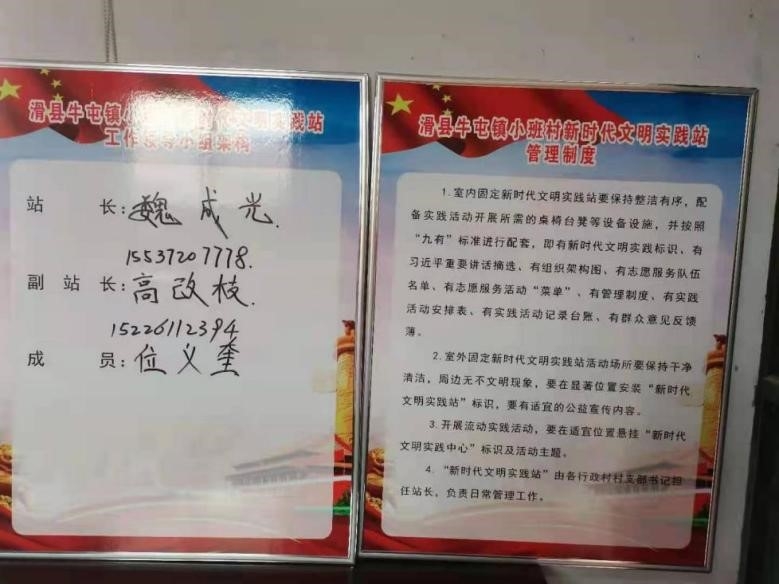 滑县牛屯镇小班村新时代文明实践站
工作领导小组架构
站 长：魏成光
15537207778
副站长：高改枝
15226112394
成 员：位义奎
滑县牛屯镇小班村新时代文明实践站
管理制度
1.室内固定新时代文明实践站要保持整洁有序，配
备实践活动开展所需的桌椅台凳等设备设施，并按照
“九有”标准进行配套，即有新时代文明实践标识、有
习近平重要讲话摘选、有组织架构图、有志愿服务队伍
名单、有志愿服务活动“菜单”、有管理制度、有实践
活动安排表、有实践活动记录台账、有群众意见反馈
簿。
2.室外固定新时代文明实践站活动场所要保持干净
清洁，周边无不文明现象，要在显著位置安装“新时代
文明实践站”标识，要有适宜的公益宣传内容。
3.开展流动实践活动，要在适宜位置悬挂“新时代
文明实践中心”标识及活动主题。
4.“新时代文明实践站”由各行政村村支部书记担
任站长，负责日常管理工作。